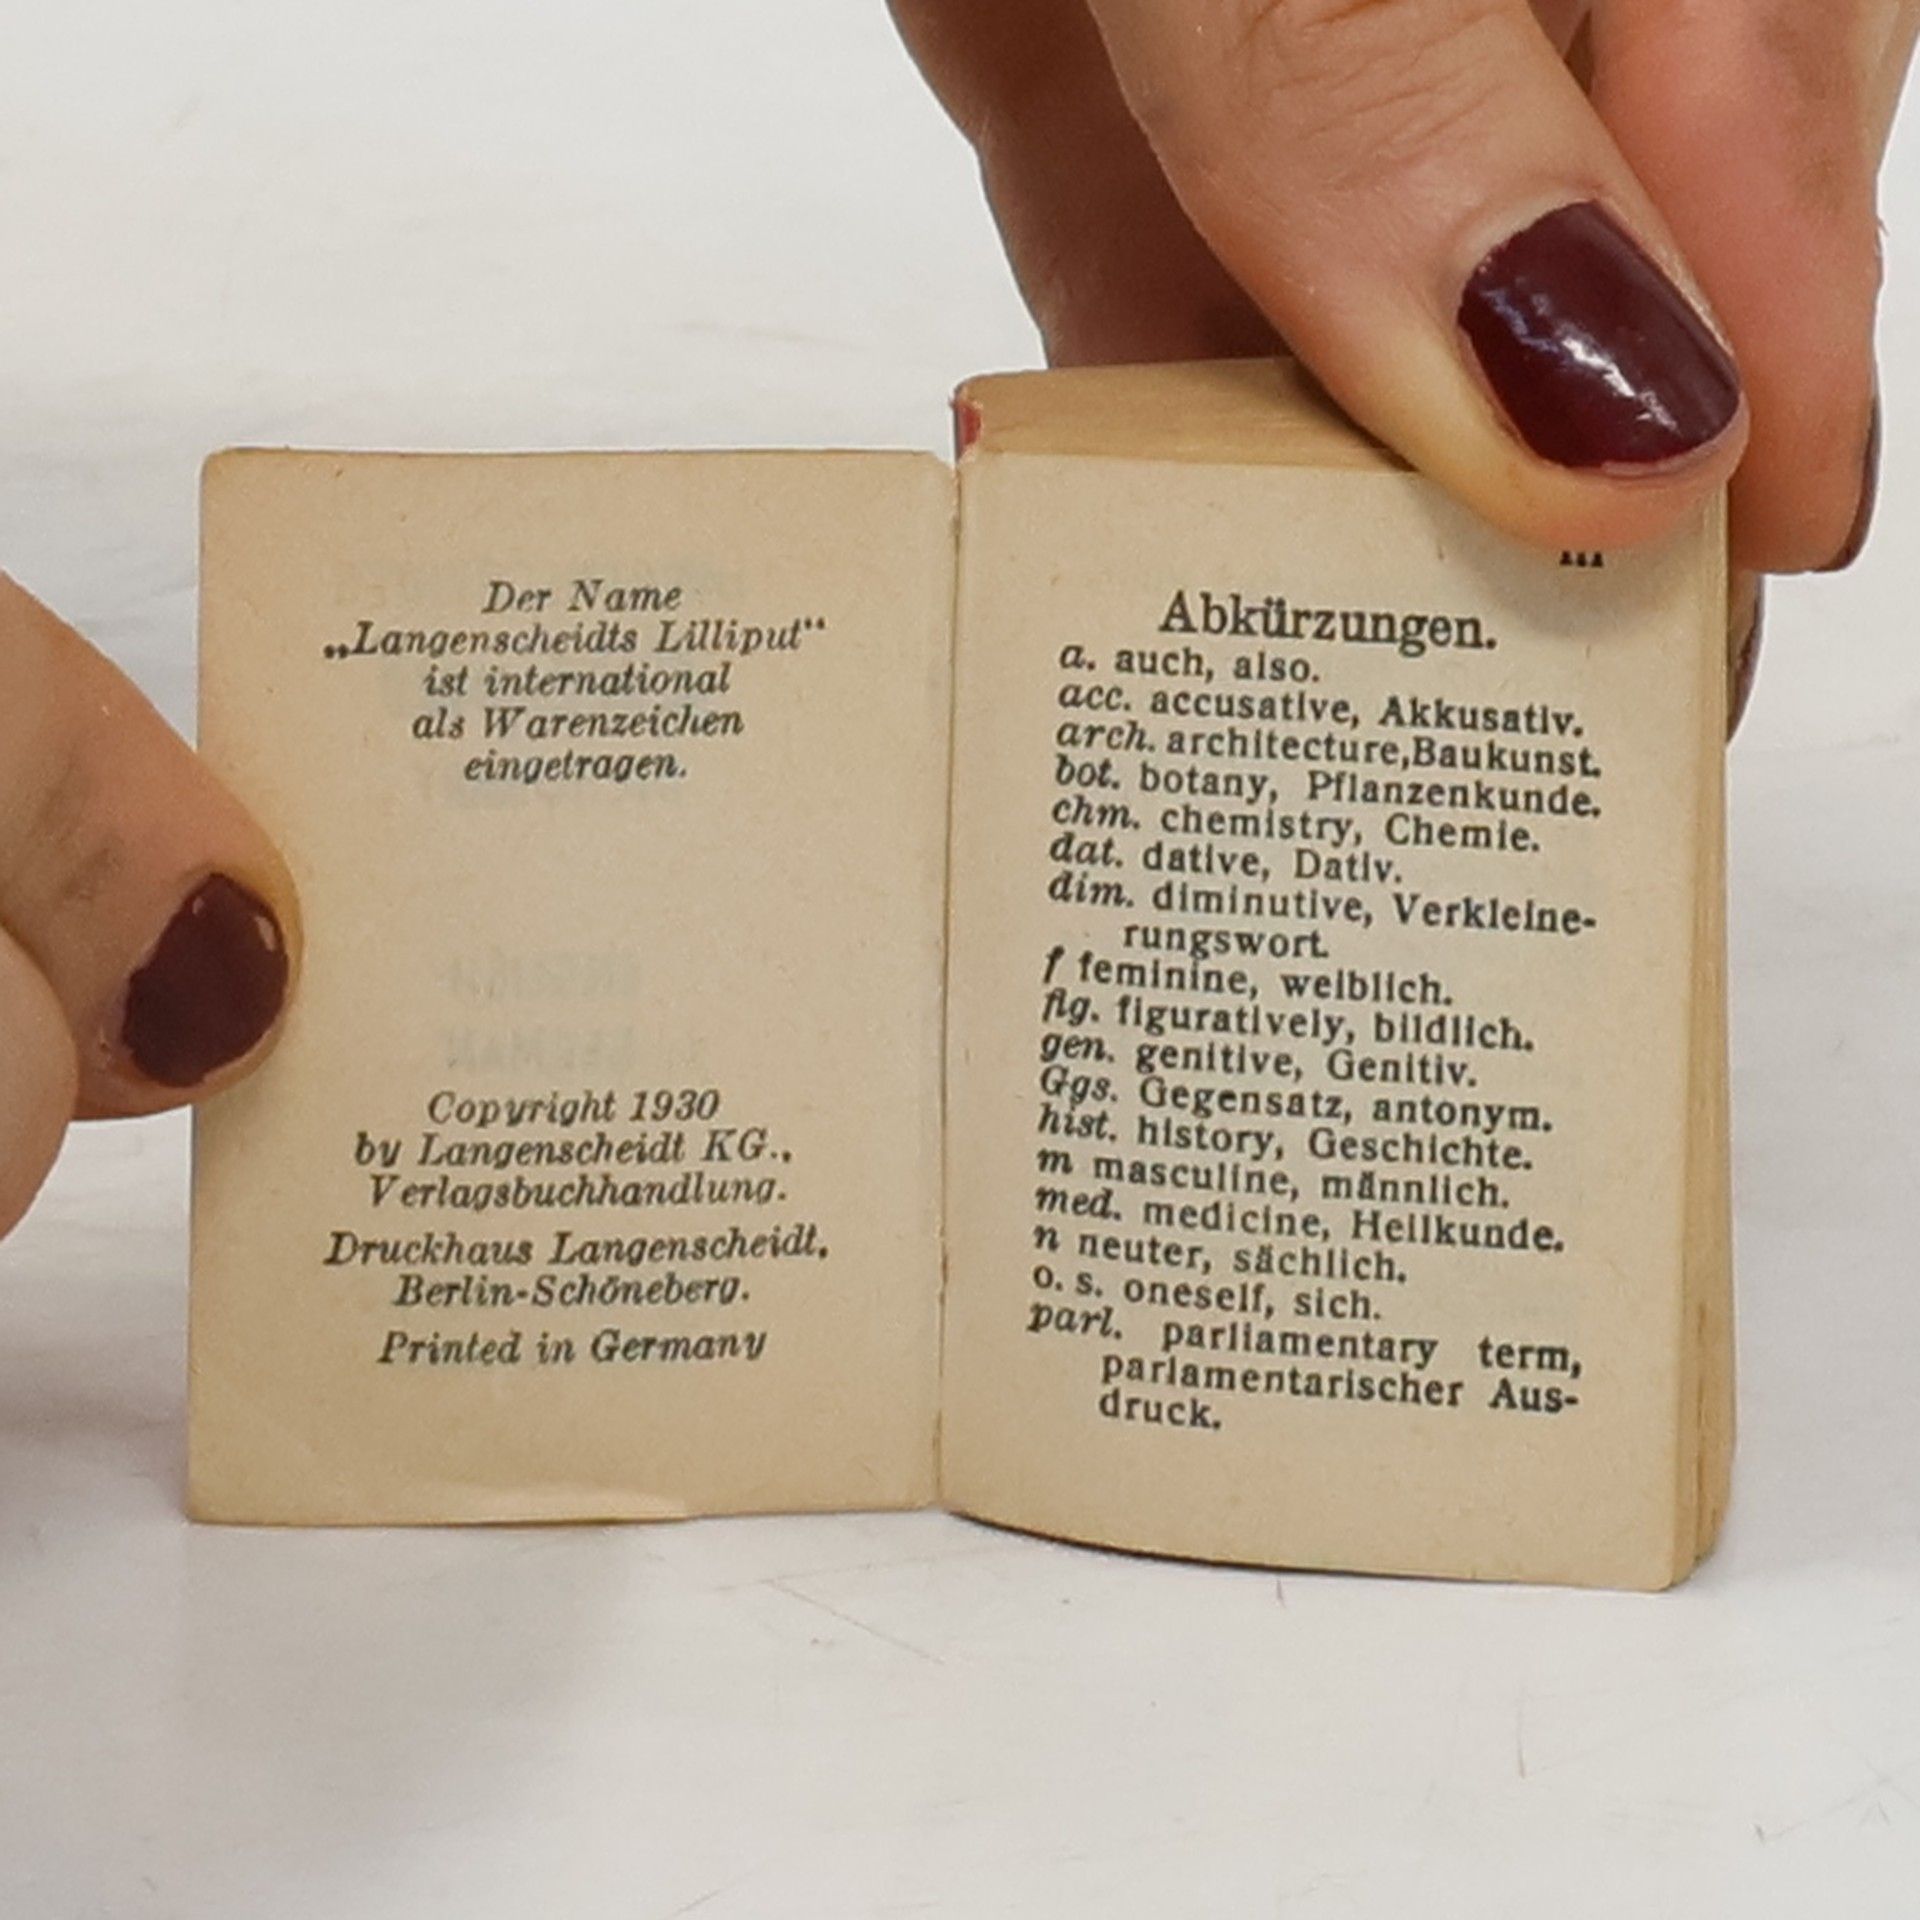 Der Name
„Langenscheidts Lilliput“
ist international
als Warenzeichen
eingetragen.
Copyright 1930
by Langenscheidt KG.,
Verlagsbuchhandlung.
Druckhaus Langenscheidt,
Berlin-Schöneberg.
Printed in Germany
III
Abkürzungen.
a. auch, also.
acc. accusative, Akkusativ.
arch. architecture, Baukunst.
bot. botany, Pflanzenkunde.
chm. chemistry, Chemie.
dat. dative, Dativ.
dim. diminutive, Verkleine-
rungswort.
f feminine, weiblich.
fig. figuratively, bildlich.
gen. genitive, Genitiv.
Ggs. Gegensatz, antonym.
hist. history, Geschichte.
m masculine, männlich.
med. medicine, Heilkunde.
n neuter, sächlich.
o. s. oneself, sich.
parl. parliamentary term,
parlamentarischer Aus-
druck.